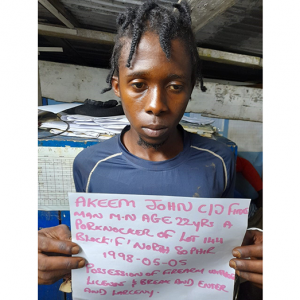 AKEEM JOHN C/J FINE
MAN M.N AGE 22YRS A
PORKNOCKER OF LOT 144
BLOCK 'F' NORTH SOPHIA
1998-05-05
POSSESSION OF FIREARM WITHOUT
LICENSE & BREAK AND ENTER
AND LARCENY.